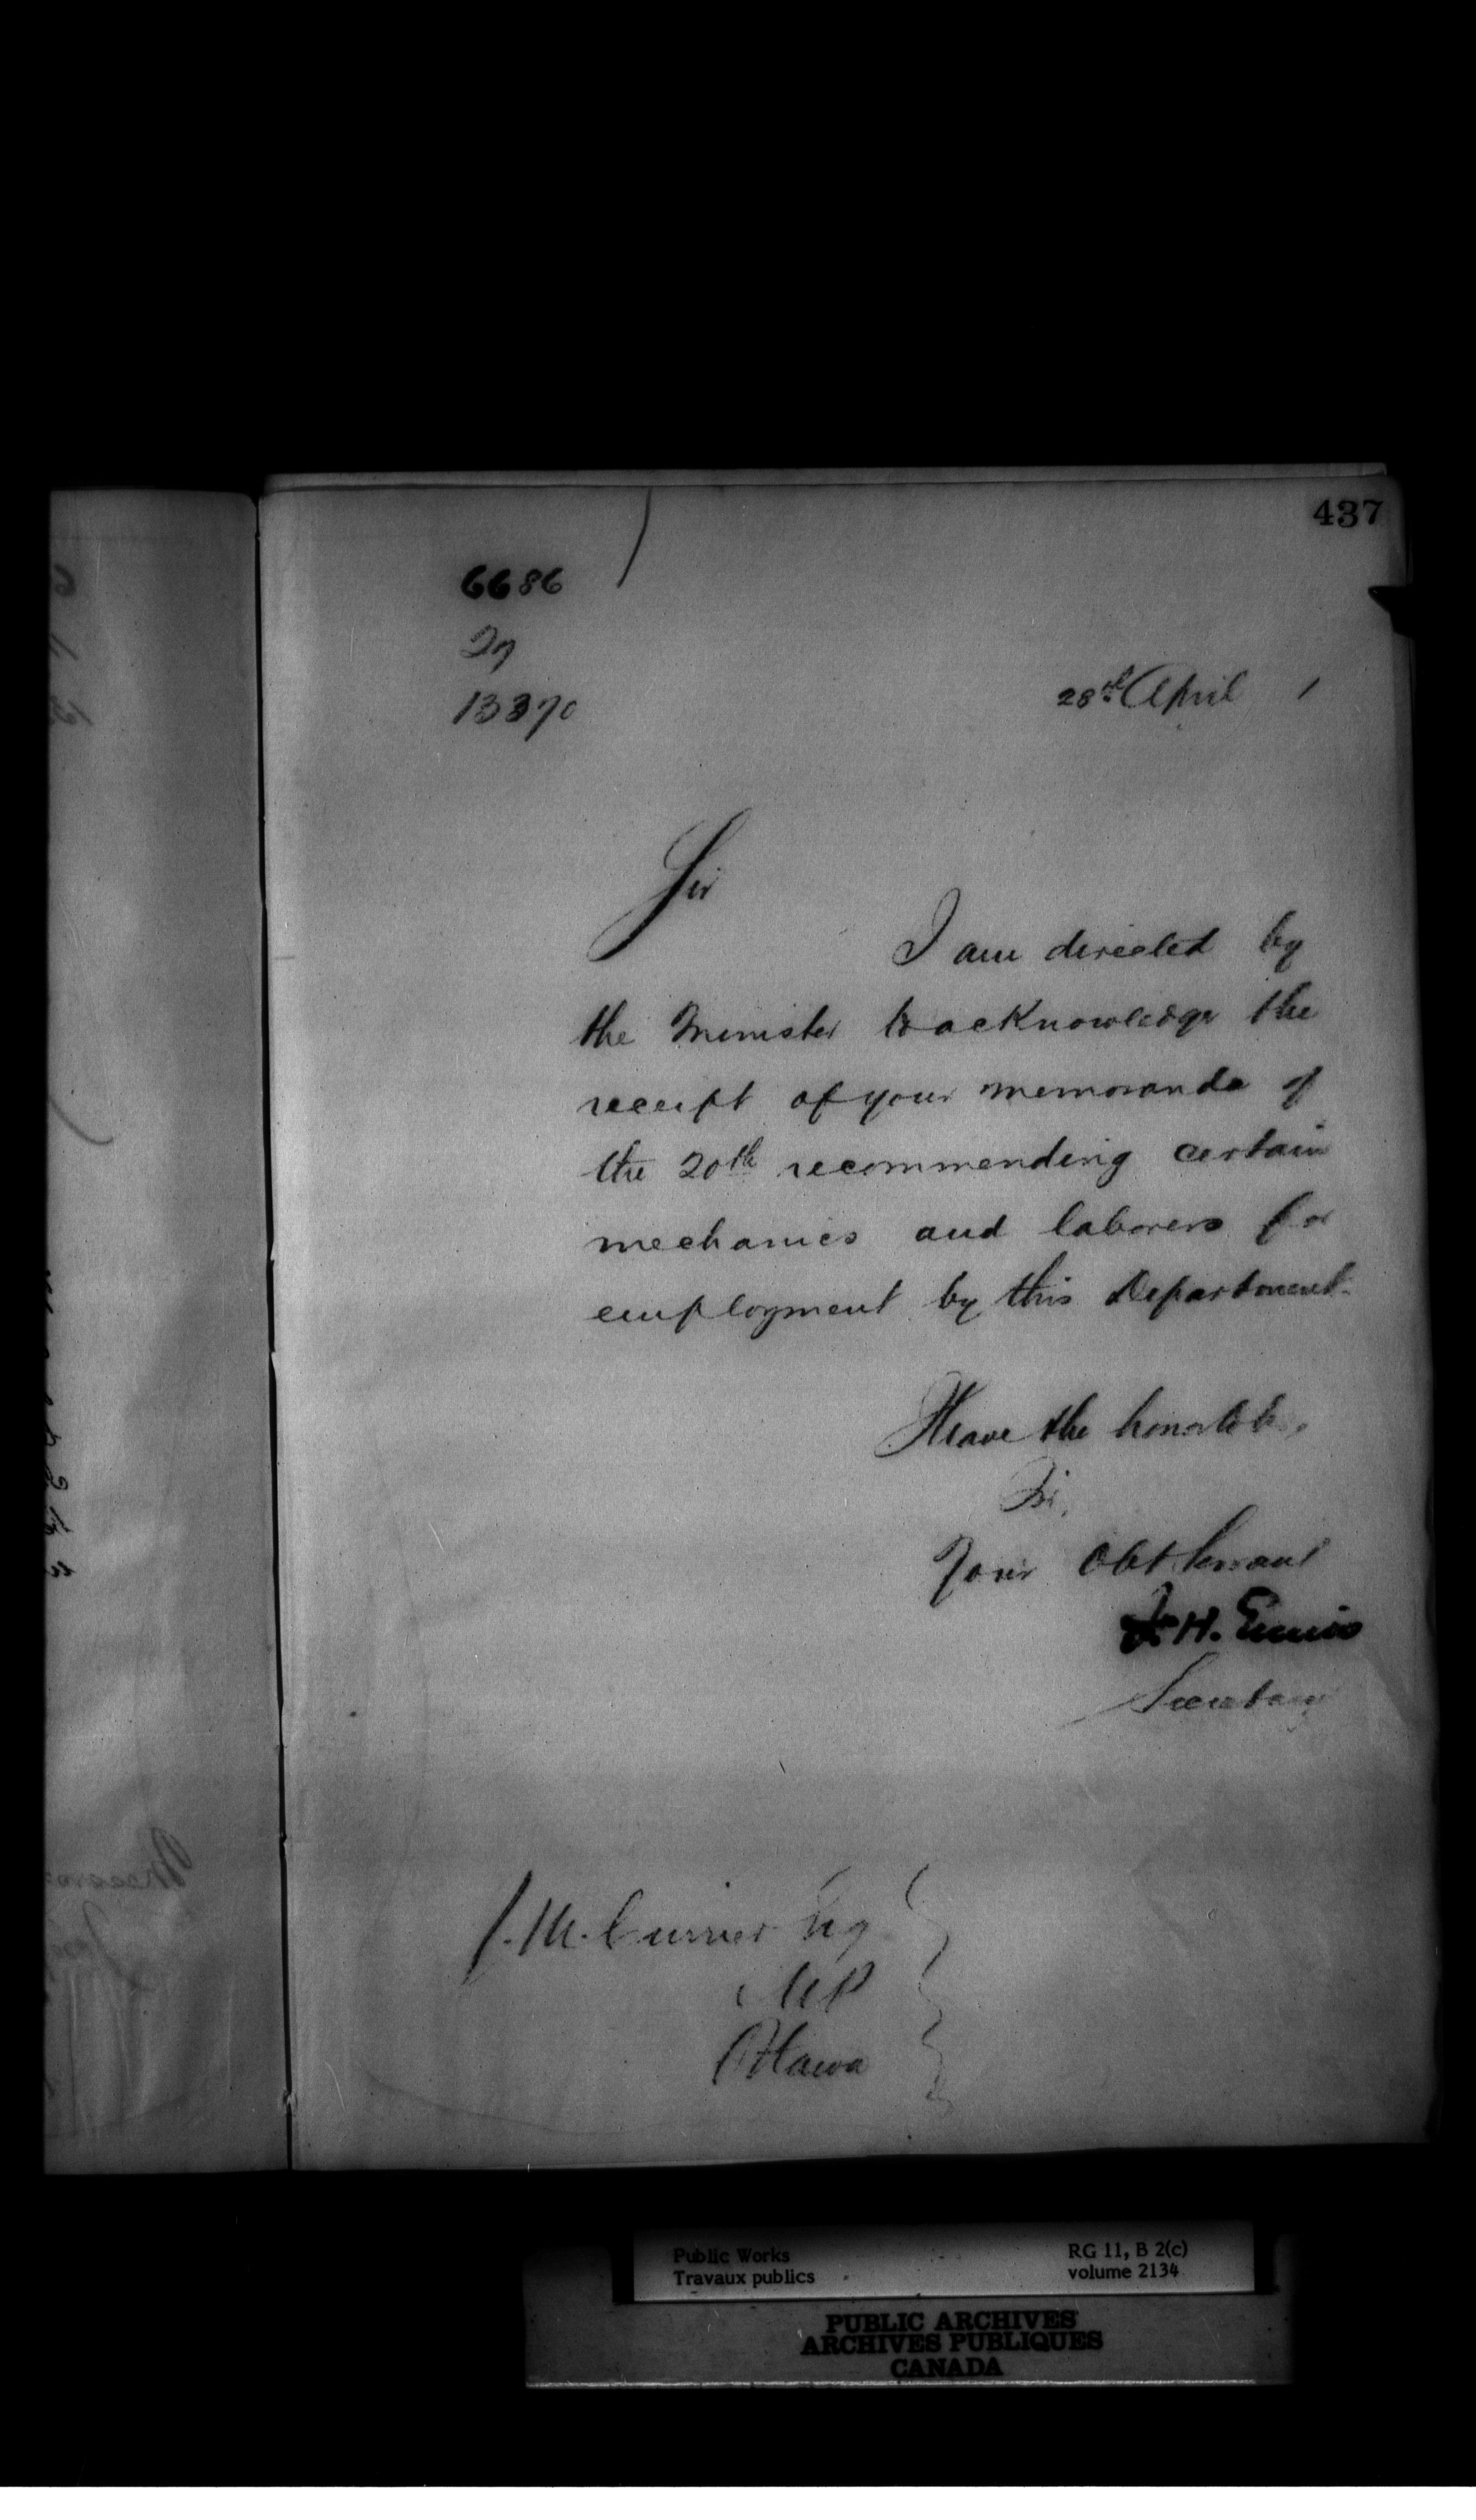 437
6686
27
13370
28th April 1
Sir
I am directed by
the Minister to acknowledge the
receipt of your memoranda of
the 20th recommending certain
mechanics and laborers for
employment by this Department.
I have the honor to be,
Sir,
Your Obt Servant
F. H. Ennis
Secretary
J. M. Currier Esq
M P
Ottawa
Public Works
Travaux publics
RG 11, B 2(c)
volume 2134
PUBLIC ARCHIVES
ARCHIVES PUBLIQUES
CANADA